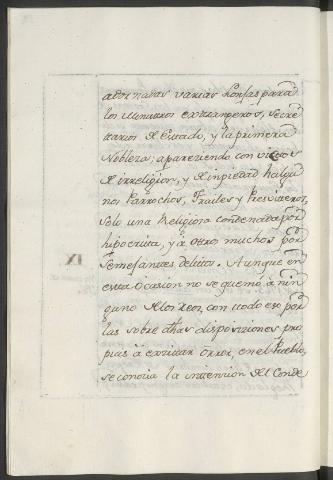 adornadas varias Lonjas para
los Ministros extrangeros, Secre
tarios de Estado, y la primera
Nobleza; apareciendo con visos
de irreligion, y de impiedad âlgu
nos Parrochos, Frailes y Presviteros,
solo una Religiosa condenada por
hipocrita, y â otros muchos por
semejantes delitos. Aunque en
esta ôcasion no se quemó â nin
guno de los reos, con todo eso por
las sobre dhas disposiciones pro
pias â excitar ôrror, en el Pueblo,
se conocia la intension del Conde